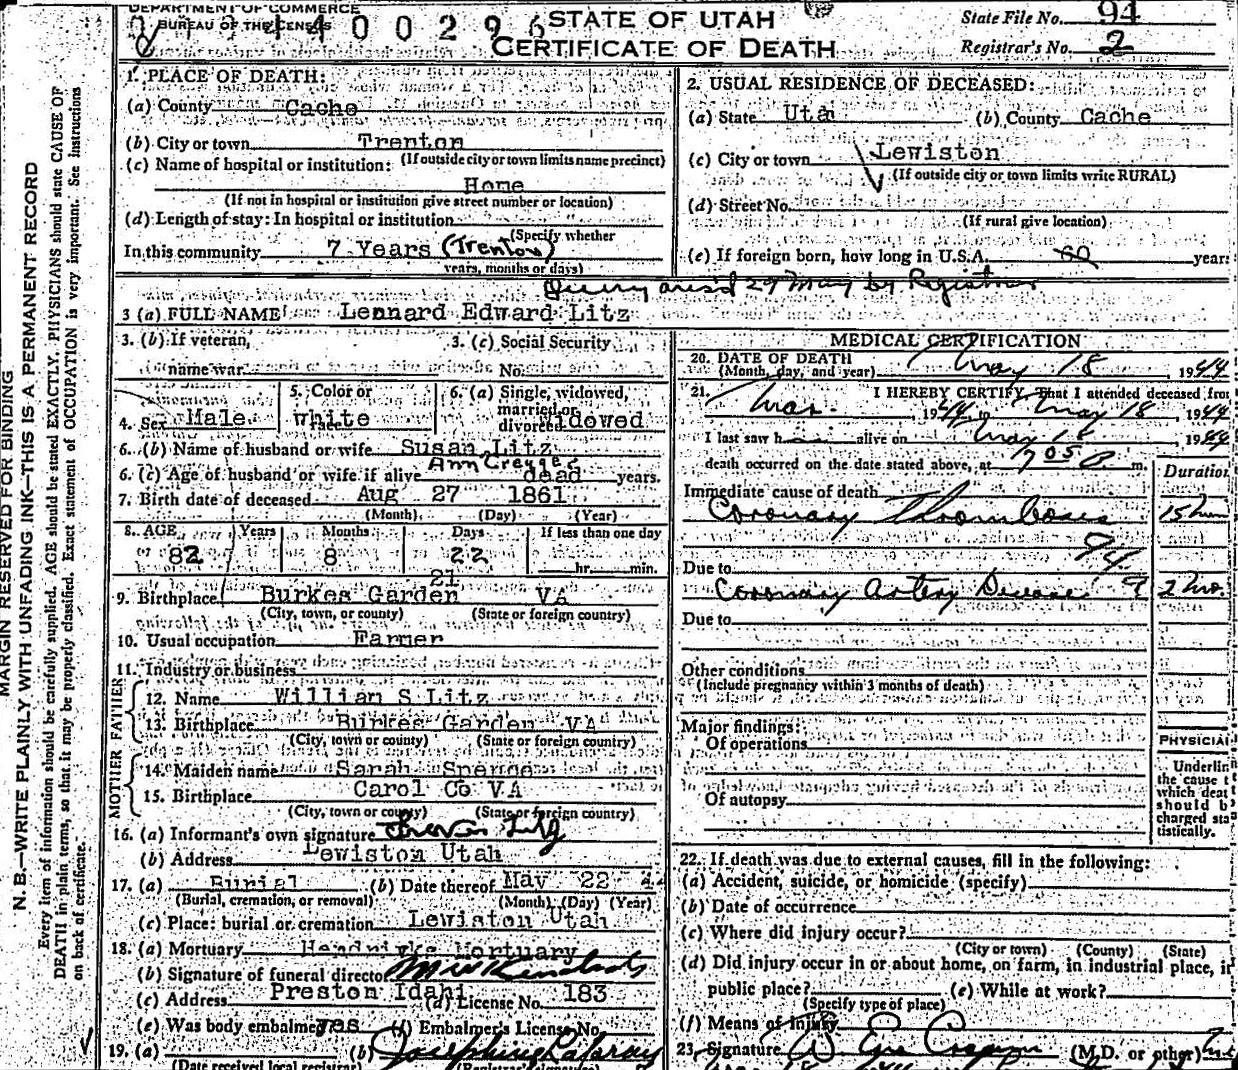 DEPARTMENT OF COMMERCE
BUREAU OF THE CENSUS
4 4 0 0 2 9 6
STATE OF UTAH
CERTIFICATE OF DEATH
State File No. 94
Registrar's No. 2
MARGIN RESERVED FOR BINDING
N. B.—WRITE PLAINLY WITH UNFADING INK—THIS IS A PERMANENT RECORD
Every item of information should be carefully supplied. AGE should be stated EXACTLY. PHYSICIANS should state CAUSE OF
DEATH in plain terms, so that it may be properly classified. Exact statement of OCCUPATION is very important. See instructions
on back of certificate.
1. PLACE OF DEATH:
(a) County Cache
(b) City or town Trenton
(If outside city or town limits name precinct)
(c) Name of hospital or institution:
Home
(If not in hospital or institution give street number or location)
(d) Length of stay: In hospital or institution
(Specify whether
In this community 7 Years (Trenton)
years, months or days)
2. USUAL RESIDENCE OF DECEASED:
(a) State Utah (b) County Cache
(c) City or town Lewiston
(If outside city or town limits write RURAL)
(d) Street No.
(If rural give location)
(e) If foreign born, how long in U.S.A. years
Query ans'd 29 May by Registrar
3 (a) FULL NAME Lennard Edward Litz
3. (b) If veteran,
name war
3. (c) Social Security
No.
4. Sex Male
5. Color or
race White
6. (a) Single, widowed,
married or
divorced Widowed
6. (b) Name of husband or wife Susan Litz
Ann
6. (c) Age of husband or wife if alive dead years.
7. Birth date of deceased Aug 27 1861
(Month) (Day) (Year)
8. AGE Years Months Days If less than one day
82 8 22 hr. min.
21
9. Birthplace Burkes Garden VA
(City, town, or county) (State or foreign country)
10. Usual occupation Farmer
11. Industry or business
FATHER
12. Name Willian S Litz
13. Birthplace Burkes Garden VA
(City, town or county) (State or foreign country)
MOTHER
14. Maiden name Sarah Spence
15. Birthplace Carol Co VA
(City, town or county) (State or foreign country)
16. (a) Informant's own signature Litz
(b) Address Lewiston Utah
17. (a) Burial (b) Date thereof May 22 44
(Burial, cremation, or removal) (Month) (Day) (Year)
(c) Place: burial or cremation Lewiston Utah
18. (a) Mortuary Hendricks Mortuary
(b) Signature of funeral director
(c) Address Preston Idaho (d) License No. 183
(e) Was body embalmed yes (f) Embalmer's License No.
19. (a) (b) Josephine
(Date received local registrar) (Registrar's signature)
MEDICAL CERTIFICATION
20. DATE OF DEATH
(Month, day, and year) May 18, 1944
21. I HEREBY CERTIFY, That I attended deceased from
Mar. 1944, to May 18 1944
I last saw h alive on May 18 1944
death occurred on the date stated above, at 7 05 P m.
Duration
Immediate cause of death
Coronary Thrombosis
94
Due to
Coronary Artery Disease
Due to
Other conditions
(Include pregnancy within 3 months of death)
Major findings:
Of operations
Of autopsy
PHYSICIAN
Underline
the cause t
which deat
should b
charged sta
tistically.
22. If death was due to external causes, fill in the following:
(a) Accident, suicide, or homicide (specify)
(b) Date of occurrence
(c) Where did injury occur?
(City or town) (County) (State)
(d) Did injury occur in or about home, on farm, in industrial place, in
public place? (e) While at work?
(Specify type of place)
(f) Means of Injury
23. Signature (M.D. or other)